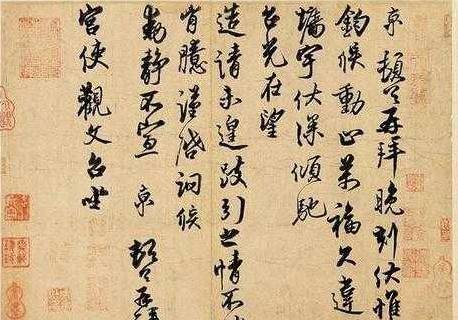 京頓首再拜晚刻伏惟
鈞候動止萬福久違
墻宇伏深傾馳
台光在望
造請未遑跂引之情不勝
胸臆謹啓詞候
動靜不宣 京 頓首再拜
宮使觀文台坐